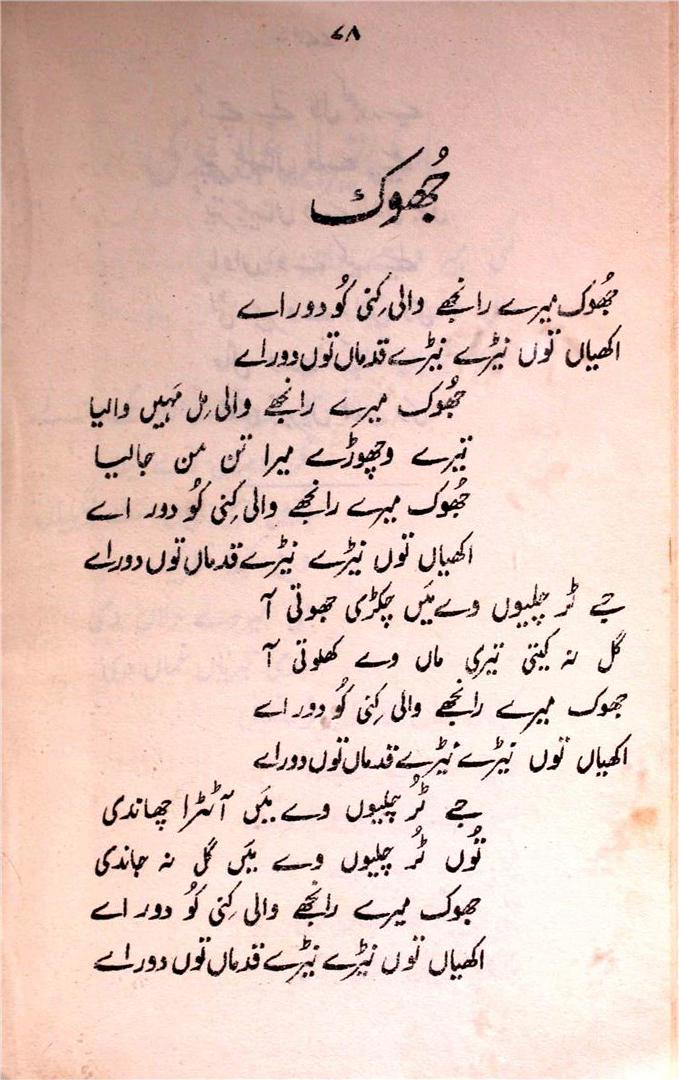 ۶۸
جُھوک
جھُوک میرے رانجھے والی کِنی کُو دور اے
اکھیاں توں نیڑے نیڑے قدماں توں دور اے
جھُوک میرے رانجھے والی مِل مَہیں والیا
تیرے وچھوڑے میرا تن من جالیا
جھُوک میرے رانجھے والی کِنی کُو دور اے
اکھیاں توں نیڑے نیڑے قدماں توں دور اے
جے ٹر چلیوں وے مَیں چکڑی جھوتی آ
گل نہ کیتی تیری ماں وے کھلوتی آ
جھوک میرے رانجھے والی کِنی کُو دور اے
اکھیاں توں نیڑے نیڑے قدماں توں دور اے
جے ٹُر چلیوں وے مَیں آٹڑا چھاندی
تُوں ٹُر چلیوں وے مَیں گل نہ جاندی
جھوک میرے رانجھے والی کِنی کُو دور اے
اکھیاں توں نیڑے نیڑے قدماں توں دور اے